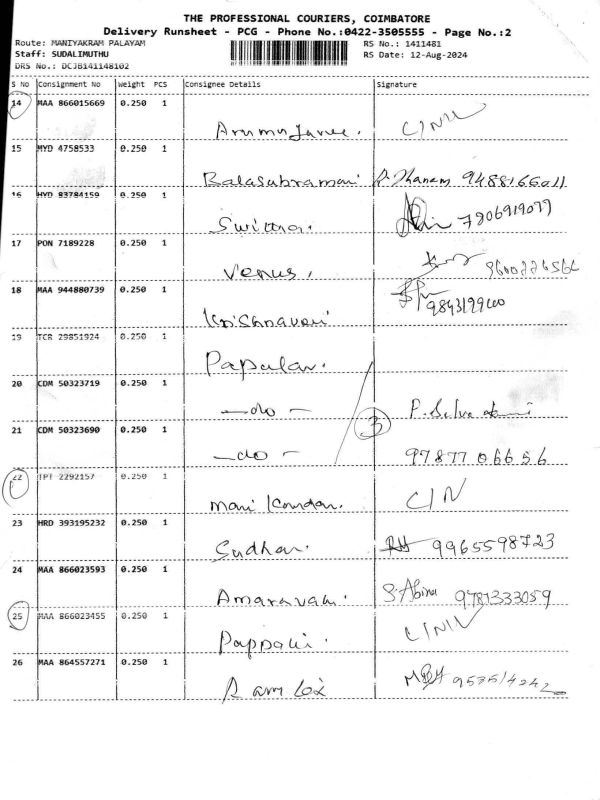 THE PROFESSIONAL COURIERS, COIMBATORE
Delivery Runsheet - PCG - Phone No.:0422-3505555 - Page No.:2
Route: MANIYAKRAM PALAYAM RS No.: 1411481
Staff: SUDALIMUTHU RS Date: 12-Aug-2024
DRS No.: DCJB141148102
S No Consignment No Weight PCS Consignee Details Signature
14 MAA 866015669 0.250 1
15 MYD 4758533 0.250 1
Balasubramani P. Dhanam 9488166011
16 HYD 83784159 0.250 1
7806919079
17 PON 7189228 0.250 1
Venus,
18 MAA 944880739 0.250 1
Krishnaveni
19 TCR 29851924 0.250 1
Papulav.
20 CDM 50323719 0.250 1
-do- P. Selva
3
21 CDM 50323690 0.250 1
-do- 9787706656
22 TPT 2292157 0.250 1
mani kandan. C/N
23 HRD 393195232 0.250 1
Sudhar. 9965598723
24 MAA 866023593 0.250 1
Amaravani. S. Abina 9787333059
25 MAA 866023455 0.250 1
Pappani.
26 MAA 864557271 0.250 1